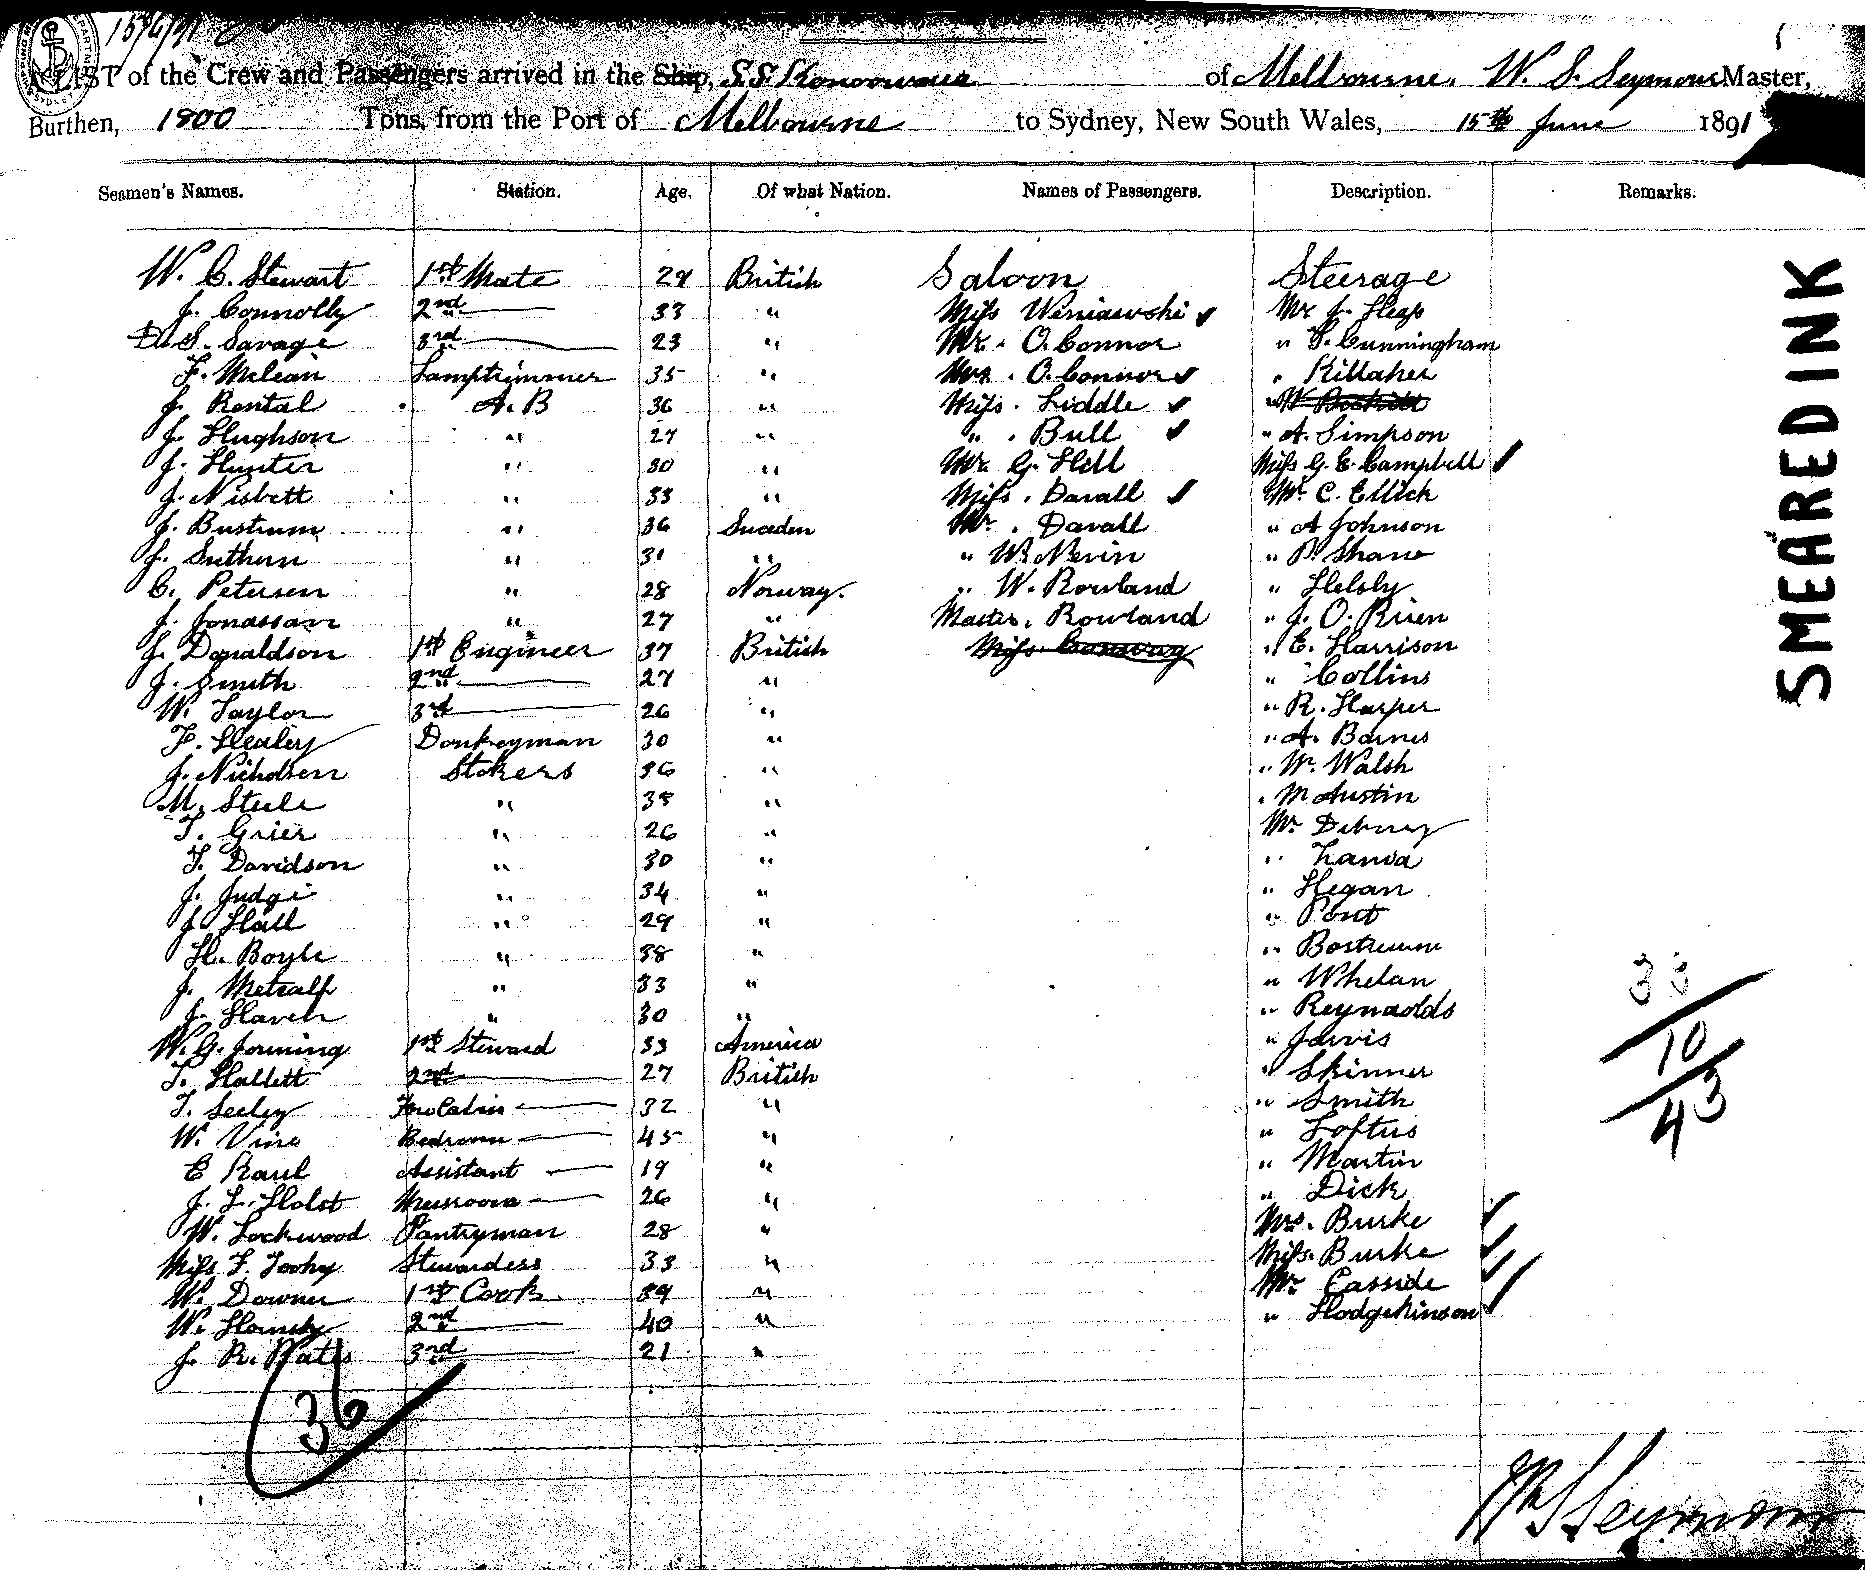 15/6/91
A LIST of the Crew and Passengers arrived in the Ship, S.S. Konoowarra of Melbourne, W. S. Seymour Master,
Burthen, 1800 Tons, from the Port of Melbourne to Sydney, New South Wales, 15th June 1891
Seamen's Names. Station. Age. Of what Nation. Names of Passengers. Description. Remarks.
W. C. Stewart 1st Mate 29 British Saloon Steerage
J. Connolly 2nd 33 " Miss Weniawski Mr J. Heap
D. S. Savage 3rd 23 " Mr. O.Connor " S. Cunningham
F. McLean Lamptrimmer 35 " Mrs. O.Connor " Killaher
J. Rental A.B 36 " Miss. Liddle "
J. Hughson " 27 " " . Bull " A. Simpson
J. Hunter " 30 " Mr. G. Hill Miss G. E. Campbell
J. Nisbett " 33 " Miss. Davall Mr. C. Ellich
J. Bustrum " 36 Sweden Mr. Davall " A Johnson
J. Suthern " 31 " " W. Nevin " P. Shane
C. Petersen " 28 Norway. " W. Rowland " Helsby
J. Jonassan " 27 " Master. Rowland " J. O. Rien
J. Donaldson 1st Engineer 37 British Miss. Conway " E. Harrison
J. Smith 2nd 27 " " Collins
W. Taylor 3rd 26 " " R. Harper
F. Healey Donkeyman 30 " " A. Barnes
J. Nicholsen Stokers 36 " " W. Walsh
M. Steele " 38 " " M Austin
T. Grier " 26 " Mr Debney
T. Davidson " 30 " "
J. Judge " 34 " " Hegan
J. Hall " 29 " " Pont
H. Boyle " 38 " " Bostrumm
J. Metcalf " 33 " " Whelan
J. Slaven " 30 " " Reynaolds
W. G. Jorming 1st Steward 33 America " Jarvis
T. Hallett 2nd 27 British " Skinner
T. Seeley Fore Cabin 32 " " Smith
W. Vine Bedroom 45 " " Loftus
E Raul Assistant 19 " " Martin
J. L. Holst Messroom 26 " " Dick
W. Lockwood Pantryman 28 " Mrs. Burke
Miss F. Toohy Stewardess 33 " Miss. Burke
W. Downer 1st Cook 39 " Mr Casside
W. Hornsby 2nd 40 " " Hodgskinson
J. R. Bates 3rd 21 "
36
33
10
43
SMEARED INK
W S Seymour